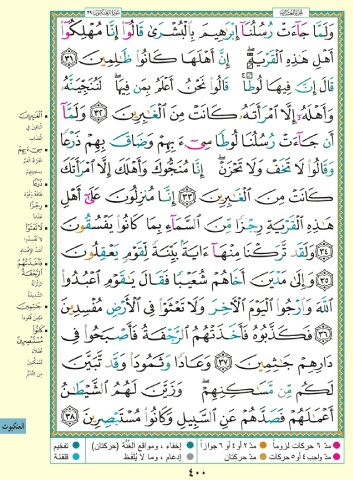 سورة العنكبوت ٢٩
وَلَمَّا جَآءَتْ رُسُلُنَآ إِبْرَٰهِيمَ بِٱلْبُشْرَىٰ قَالُوٓا۟ إِنَّا مُهْلِكُوٓا۟
أَهْلِ هَٰذِهِ ٱلْقَرْيَةِ ۖ إِنَّ أَهْلَهَا كَانُوا۟ ظَٰلِمِينَ ٣١
قَالَ إِنَّ فِيهَا لُوطًا ۚ قَالُوا۟ نَحْنُ أَعْلَمُ بِمَن فِيهَا ۖ لَنُنَجِّيَنَّهُۥ
وَأَهْلَهُۥٓ إِلَّا ٱمْرَأَتَهُۥ كَانَتْ مِنَ ٱلْغَٰبِرِينَ ٣٢ وَلَمَّآ
أَن جَآءَتْ رُسُلُنَا لُوطًا سِىٓءَ بِهِمْ وَضَاقَ بِهِمْ ذَرْعًا
وَقَالُوا۟ لَا تَخَفْ وَلَا تَحْزَنْ ۖ إِنَّا مُنَجُّوكَ وَأَهْلَكَ إِلَّا ٱمْرَأَتَكَ
كَانَتْ مِنَ ٱلْغَٰبِرِينَ ٣٣ إِنَّا مُنزِلُونَ عَلَىٰٓ أَهْلِ
هَٰذِهِ ٱلْقَرْيَةِ رِجْزًا مِّنَ ٱلسَّمَآءِ بِمَا كَانُوا۟ يَفْسُقُونَ
٣٤ وَلَقَد تَّرَكْنَا مِنْهَآ ءَايَةًۢ بَيِّنَةً لِّقَوْمٍ يَعْقِلُونَ
٣٥ وَإِلَىٰ مَدْيَنَ أَخَاهُمْ شُعَيْبًا فَقَالَ يَٰقَوْمِ ٱعْبُدُوا۟
ٱللَّهَ وَٱرْجُوا۟ ٱلْيَوْمَ ٱلْءَاخِرَ وَلَا تَعْثَوْا۟ فِى ٱلْأَرْضِ مُفْسِدِينَ
٣٦ فَكَذَّبُوهُ فَأَخَذَتْهُمُ ٱلرَّجْفَةُ فَأَصْبَحُوا۟ فِى
دَارِهِمْ جَٰثِمِينَ ٣٧ وَعَادًا وَثَمُودَا۟ وَقَد تَّبَيَّنَ
لَكُم مِّن مَّسَٰكِنِهِمْ ۖ وَزَيَّنَ لَهُمُ ٱلشَّيْطَٰنُ
أَعْمَٰلَهُمْ فَصَدَّهُمْ عَنِ ٱلسَّبِيلِ وَكَانُوا۟ مُسْتَبْصِرِينَ ٣٨
الغابرين
سيء بهم
ذرعا
رجزا
لا تعثوا
فأخذتهم
الرجفة
جاثمين
كانوا
مستبصرين
العنكبوت
مدّ ٦ حركات لزوماً
مدّ ٢ أو ٤ أو ٦ جوازاً
إخفاء، ومواقع الغنّة (حركتان)
تفخيم
مدّ واجب ٤ أو ٥ حركات
مدّ حركتان
إدغام، وما لا يُلفظ
قلقلة
٤٠٠